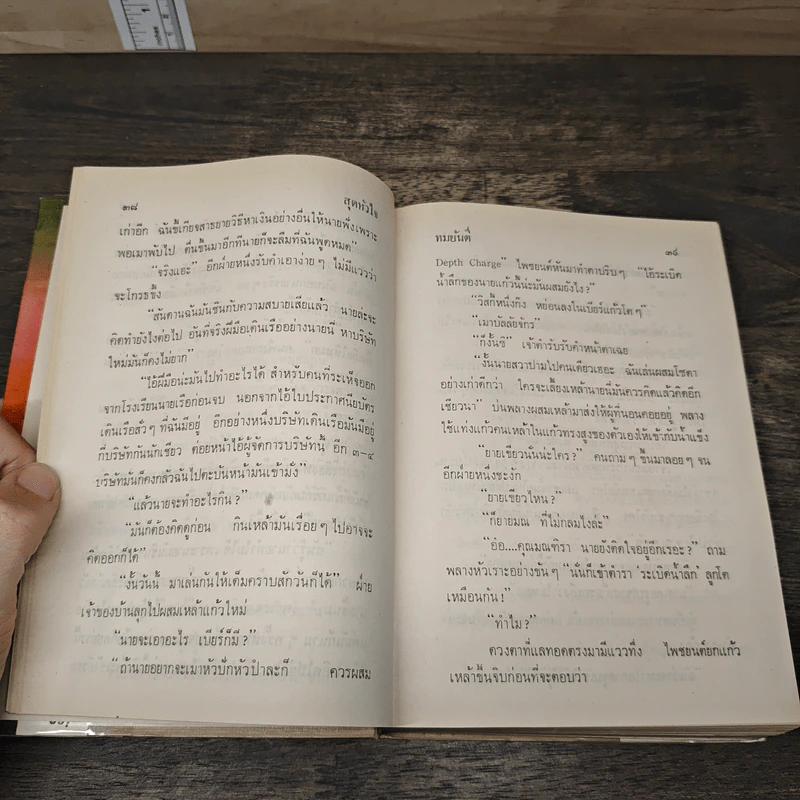 ๓๘ สุดหัวใจ
เก่าอีก ฉันขี้เกียจสาธยายวิธีหาเงินอย่างอื่นให้นายฟังเพราะ
พอเมาพับไป ตื่นขึ้นมาอีกทีนายก็จะลืมที่ฉันพูดหมด”
“จริงแฮะ” อีกฝ่ายหนึ่งรับคำเอาง่าย ๆ ไม่มีแววว่า
จะโกรธขึ้ง
“สันดานฉันมันชินกับความสบายเสียแล้ว นายล่ะจะ
คิดทำยังไงต่อไป อันที่จริงฝีมือเดินเรืออย่างนายนี่ หาบริษัท
ใหม่มันก็คงไม่ยาก”
“ไอ้ฝีมือน่ะมันไปทำอะไรได้ สำหรับคนที่ระเห็จออก
จากโรงเรียนนายเรือก่อนจบ นอกจากไอ้ใบประกาศนียบัตร
เดินเรือสั่ว ๆ ที่ฉันมีอยู่ อีกอย่างหนึ่งบริษัทเดินเรือมันมีอยู่
กี่บริษัทกันนักเชียว ต่อยหน้าไอ้ผู้จัดการบริษัทนี้ อีก ๓-๔
บริษัทมันก็คงกลัวฉันไปตะบันหน้ามันเข้ามั่ง”
“แล้วนายจะทำอะไรกิน ?”
“มันก็ต้องคิดดูก่อน กินเหล้ามันเรื่อย ๆ ไปอาจจะ
คิดออกก็ได้”
“งั้นวันนี้ มาเล่นกันให้เต็มคราบสักวันก็ได้” ฝ่าย
เจ้าของบ้านลุกไปผสมเหล้าแก้วใหม่
“นายจะเอาอะไร เบียร์ก็มี ?”
“ถ้านายอยากจะเมาหัวปักหัวปำละก็ ควรผสม
ทมยันตี
๓๙
Depth Charge” ไพชยนต์หันมาทำตาปริบ ๆ “ไอ้ระเบิด
น้ำลึกของนายแก้วนี้น่ะมันผสมยังไง ?”
“วิสกี้หนึ่งกิ๊ง หย่อนลงในเบียร์แก้วโต ๆ”
“เมาบัลลัยจักร”
“ก็งั้นซี” เจ้าตำรับรับคำหน้าตาเฉย
“งั้นนายสวาปามไปคนเดียวเธอะ ฉันเล่นผสมโซดา
อย่างเก่าดีกว่า ใครจะเลี้ยงเหล้านายนี่มันควรคิดแล้วคิดอีก
เชียวนา” บ่นพลางผสมเหล้ามาส่งให้ผู้ที่นอนคอยอยู่ พลาง
ใช้แท่งแก้วคนเหล้าในแก้วทรงสูงของตัวเองให้เข้ากับน้ำแข็ง
“ยายเขียวนั่นน่ะใคร ?” คนถาม ๆ ขึ้นมาลอย ๆ จน
อีกฝ่ายหนึ่งชะงัก
“ยายเขียวไหน ?”
“ก็ยายมณ ที่ไม่กลมไงล่ะ”
“อ้อ....คุณมณฑิรา นายยังติดใจอยู่อีกเรอะ ?” ถาม
พลางหัวเราะอย่างขัน ๆ “นั่นก็เข้าตำรา ‘ระเบิดน้ำลึก’ ลูกโต
เหมือนกัน !”
“ทำไม ?”
ดวงตาที่แลทอดตรงมามีแววทึ่ง ไพชยนต์ยกแก้ว
เหล้าขึ้นจิบก่อนที่จะตอบว่า